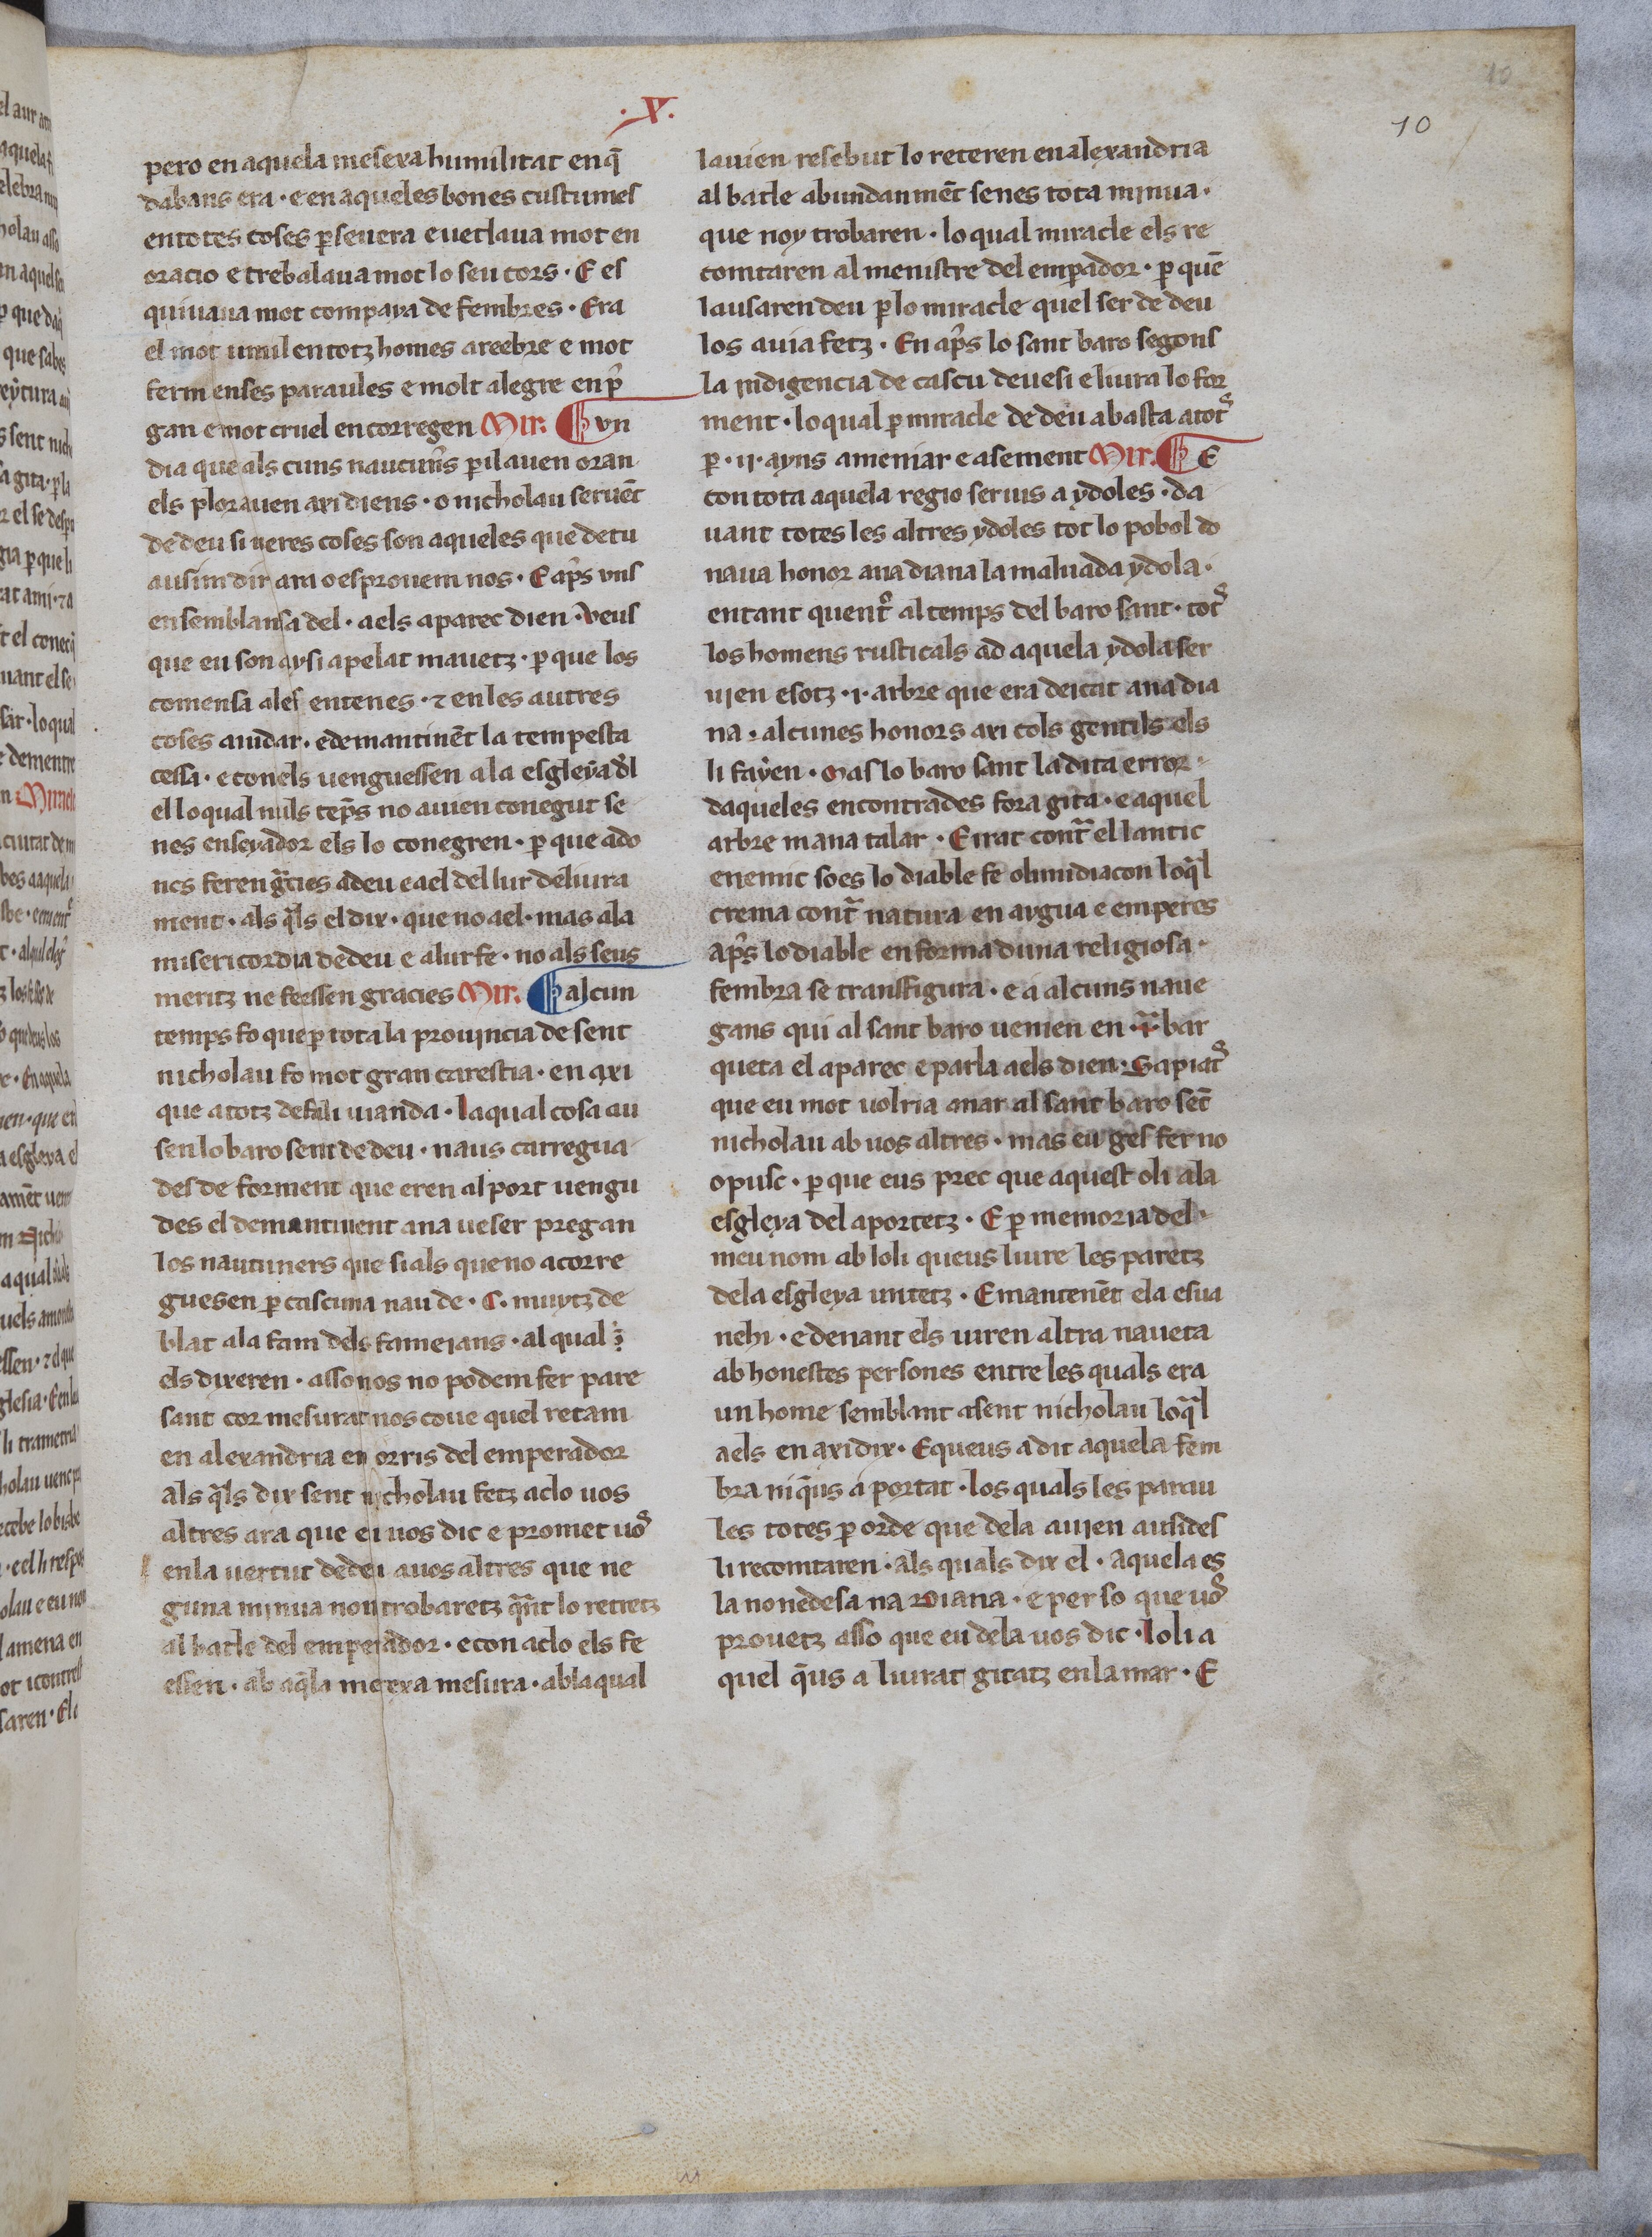 .X.
10
10
pero en aquela mesexa humilitat en q̄
dabans era · e en aqueles bones custumes
en totes coses ꝑseuera e uetlaua mot en
oracio e trebalaua mot lo seu cors · E es
quiuaua mot companya de fembres · Era
el mot umil en totz homes areebre e mot
ferm en ses paraules e molt alegre en p̄
gan e mot cruel en corregen Mir. un
dia que als cuns nautuñs ꝑil auen oran
els plorauen axi diens · o nicholau seruēt
de deu si ueres coses son aqueles que de tu
ausim dir ara o esprouem nos · E ap̄s uns
en semblansa del · a els aparec dien · Veus
que eu son aysi apelat mauetz · ꝑ que los
comensa a les entenes · ⁊ en les autres
coses aiudar · e demantinēt la tempesta
cessa · e con els uenguessen a la esgleya d̄l
el lo qual nuls tēps no auien conegut se
nes enseyador els lo conegren · ꝑ que ado
ncs feren g̃cies a deu e a el del lur deliura
ment · als q̃ls el dix · que no a el · mas a la
misericordia de deu e a lur fe · no als seus
meritz ne feessen gracies Mir. alcun
temps fo que ꝑ tota la prouincia de sent
nicholau fo mot gran carestia · en axi
que a totz defali uianda · la qual cosa au
sen lo baro sent de deu · naus carregua
des de forment que eren al port uengu
des el demantinent ana ueser pregan
los nautuners que sials que no acorre
guesen ꝑ cascuna nau de · C · muytz de
blat a la fam dels fameians · al qual s
els dixeren · asso nos no podem fer pare
sant cor mesurat nos coue quel retam
en alexandria en orris del emperador
als q̃ls dix sent nicholau fetz aclo uos
altres ara que eu uos dic e promet uos
en la uertut de deu a uos altres que ne
guna minua non trobaretz q̃nt lo retretz
al batle del emperador · e con aclo els fe
essen · ab aq̃la mexexa mesura · ab la qual
lauien resebut lo reteren en alexandria
al batle abundanmēt senes tota minua ·
que noy trobaren · lo qual miracle els re
comtaren al menistre del emꝑador · ꝑ quē
lausaren deu ꝑ lo miracle quel ser de deu
los auia fetz · En ap̄s lo sant baro segons
la indigencia de cascu deuesi e liura lo for
ment · lo qual ꝑ miracle de deu abasta a totˢ
ꝑ · ii · ayns a meniar e a sement Mir. E
con tota aquela regio seruis a ydoles · da
uant totes les altres ydoles tot lo pobol do
naua honor a na diana la maluada ydola ·
en tant quentᵒ al temps del baro sant · totˢ
los homens rusticals ad aquela ydola ser
uien e sotz · i · arbre que era deicat a na dia
na · alcunes honors axi cols gentils els
li fayen · Mas lo baro sant la dita error
daqueles encontrades fora gita · e aquel
arbre mana talar · E irat cont̃ el lantic
enemic so es lo diable fe oli midiacon lo q̃l
crema cont̃ natura en aygua e em peres
ap̄s lo diable en forma duna religiosa ·
fembra se transfigura · e a alcuns naue
gans qui al sant baro uenien en · i̇ᵃ · bar
queta el aparec e parla a els dien · Sapiatˢ
que eu mot uolria anar al sant baro sēt
nicholau ab uos altres · mas eu ges fer no
o pusc · ꝑ que eus prec que aquest oli a la
esgleya del aportetz · E ꝑ memoria del
meu nom ab loli queus liure les paretz
de la esgleya untetz · E mantenēt ela esua
nehi · e deuant els uiren altra naueta
ab honestes persones entre les quals era
un home semblant a sent nicholau lo q̃l
a els en axi dix · E queus a dit aquela fem
bra ni q̄us a portat · los quals les parau
les totes ꝑ orde que dela auien ausides
li recomtaren · als quals dix el · aquela es
la no nedesa na Diana · e per so que uos
prouetz asso que eu dela uos dic · loli a
quel q̄us a liurat gitatz en la mar · E